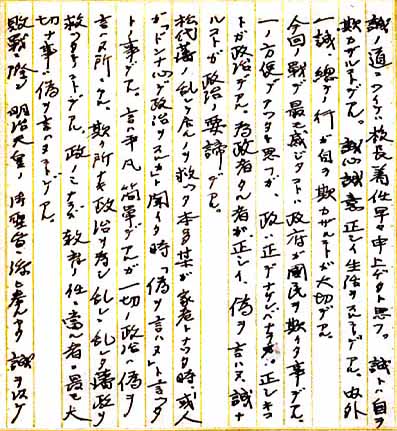 誠ノ道ニツイテハ校長着任早々申上ゲタト思フ。誠トハ自ラ
欺カザルコトデアル。誠心誠意正シイ生活ヲスルコトデアル。内外
一誠、総テノ行ガ自ラ欺カザルコトガ大切デアル。
今回ノ戦デ最モ感ジタコトハ政府ガ国民ヲ欺イタ事デアル。
一ノ方便デアツタト思フガ、政ハ正デナケレバナラヌ。正シキコ
トガ政治デアル。為政者タル者ガ正シイ、偽ヲ言ハズ、誠ナ
ルコトガ政治ノ要諦デアル。
松代藩ノ乱レタルノヲ救ツタ恩田某ガ家老トナツタ時或人
ガ「ドンナ心デ政治ヲスルカ」ト聞イタ時「偽ヲ言ハヌ」ト言ツタ
トノ事デアル。言ハ平凡、簡単デアルガ一切ノ政治ハ偽ヲ
言ハヌ所ニアル。欺ク所ナキ政治ヲ為シ乱レニ乱レタ藩政ヲ
救ツタトノコトデアル。政ノミナラズ教育ノ任ニ当ル者ノ最モ大
切ナ事ハ偽ヲ言ハヌコトデアル。
敗戦ニ際シ明治大帝ノ御聖旨ニ深ク考ヘテ誠ヲ以テ